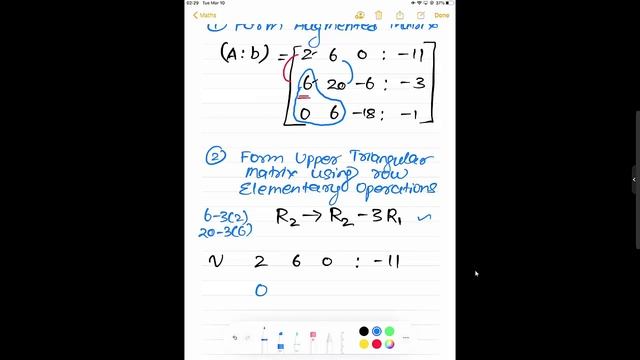 02:29 Tue Mar 10
37%
Maths
Done
① Form Augmented Matrix
(A:b) = [ 2 6 0 : -11
6 20 -6 : -3
0 6 -18 : -1 ]
② Form Upper Triangular
Matrix using row
Elementary Operations
6-3(2)
20-3(6)
R₂ → R₂ - 3R₁
~ 2 6 0 : -11
0